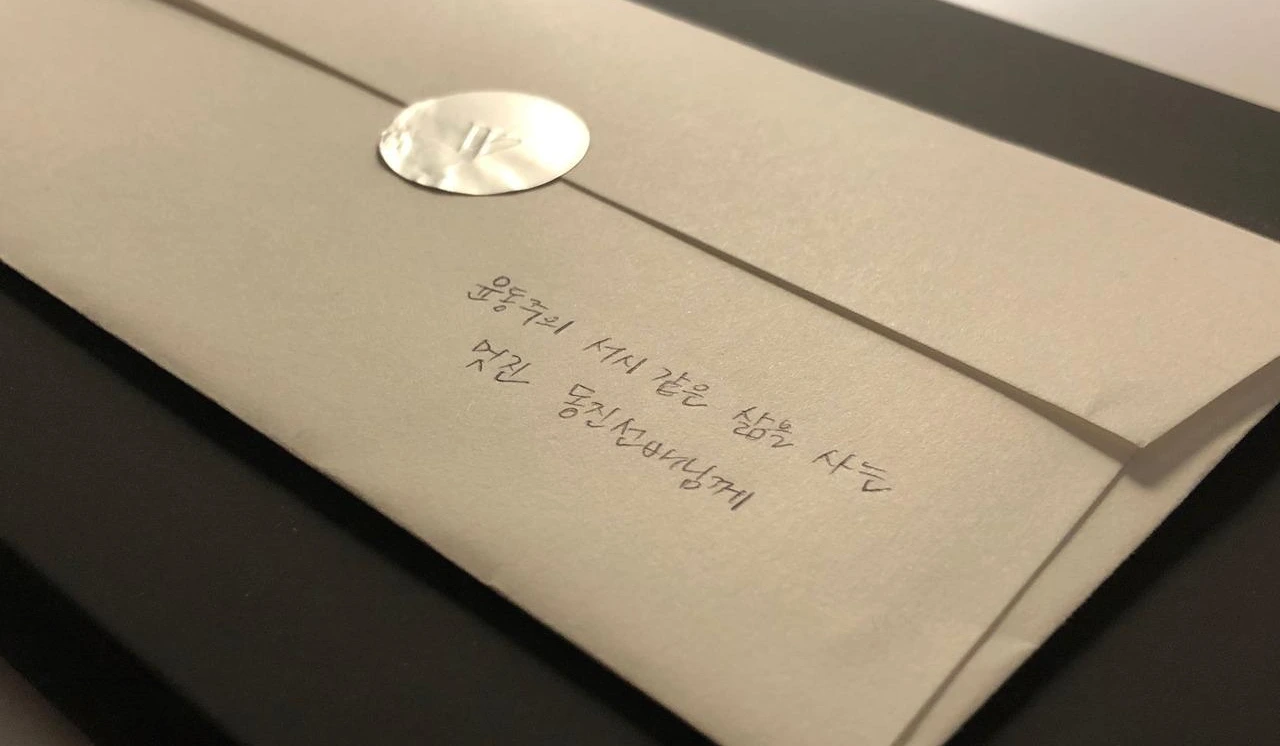 윤동주의 서시 같은 삶을 사는
멋진 동진선배님께